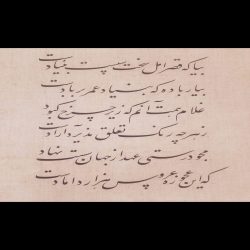 بیا که قصر امل سخت سست بنیادست
بیار باده که بنیاد عمر بر بادست
غلام همت آنم که زیر چرخ کبود
ز هر چه رنگ تعلق پذیرد آزادست
مجو درستی عهد از جهان سست نهاد
که این عجوزه عروس هزار دامادست